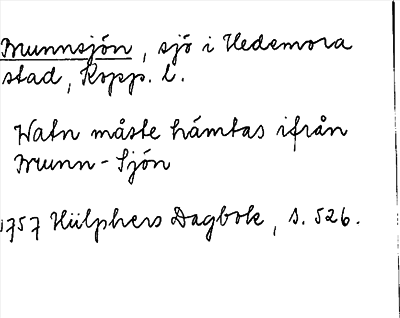 Brunnsjön, sjö i Hedemora
stad, Kopp. l.
Watn måste hämtas ifrån
Brunn-Sjön
1757 Hülphers Dagbok, s. 526.